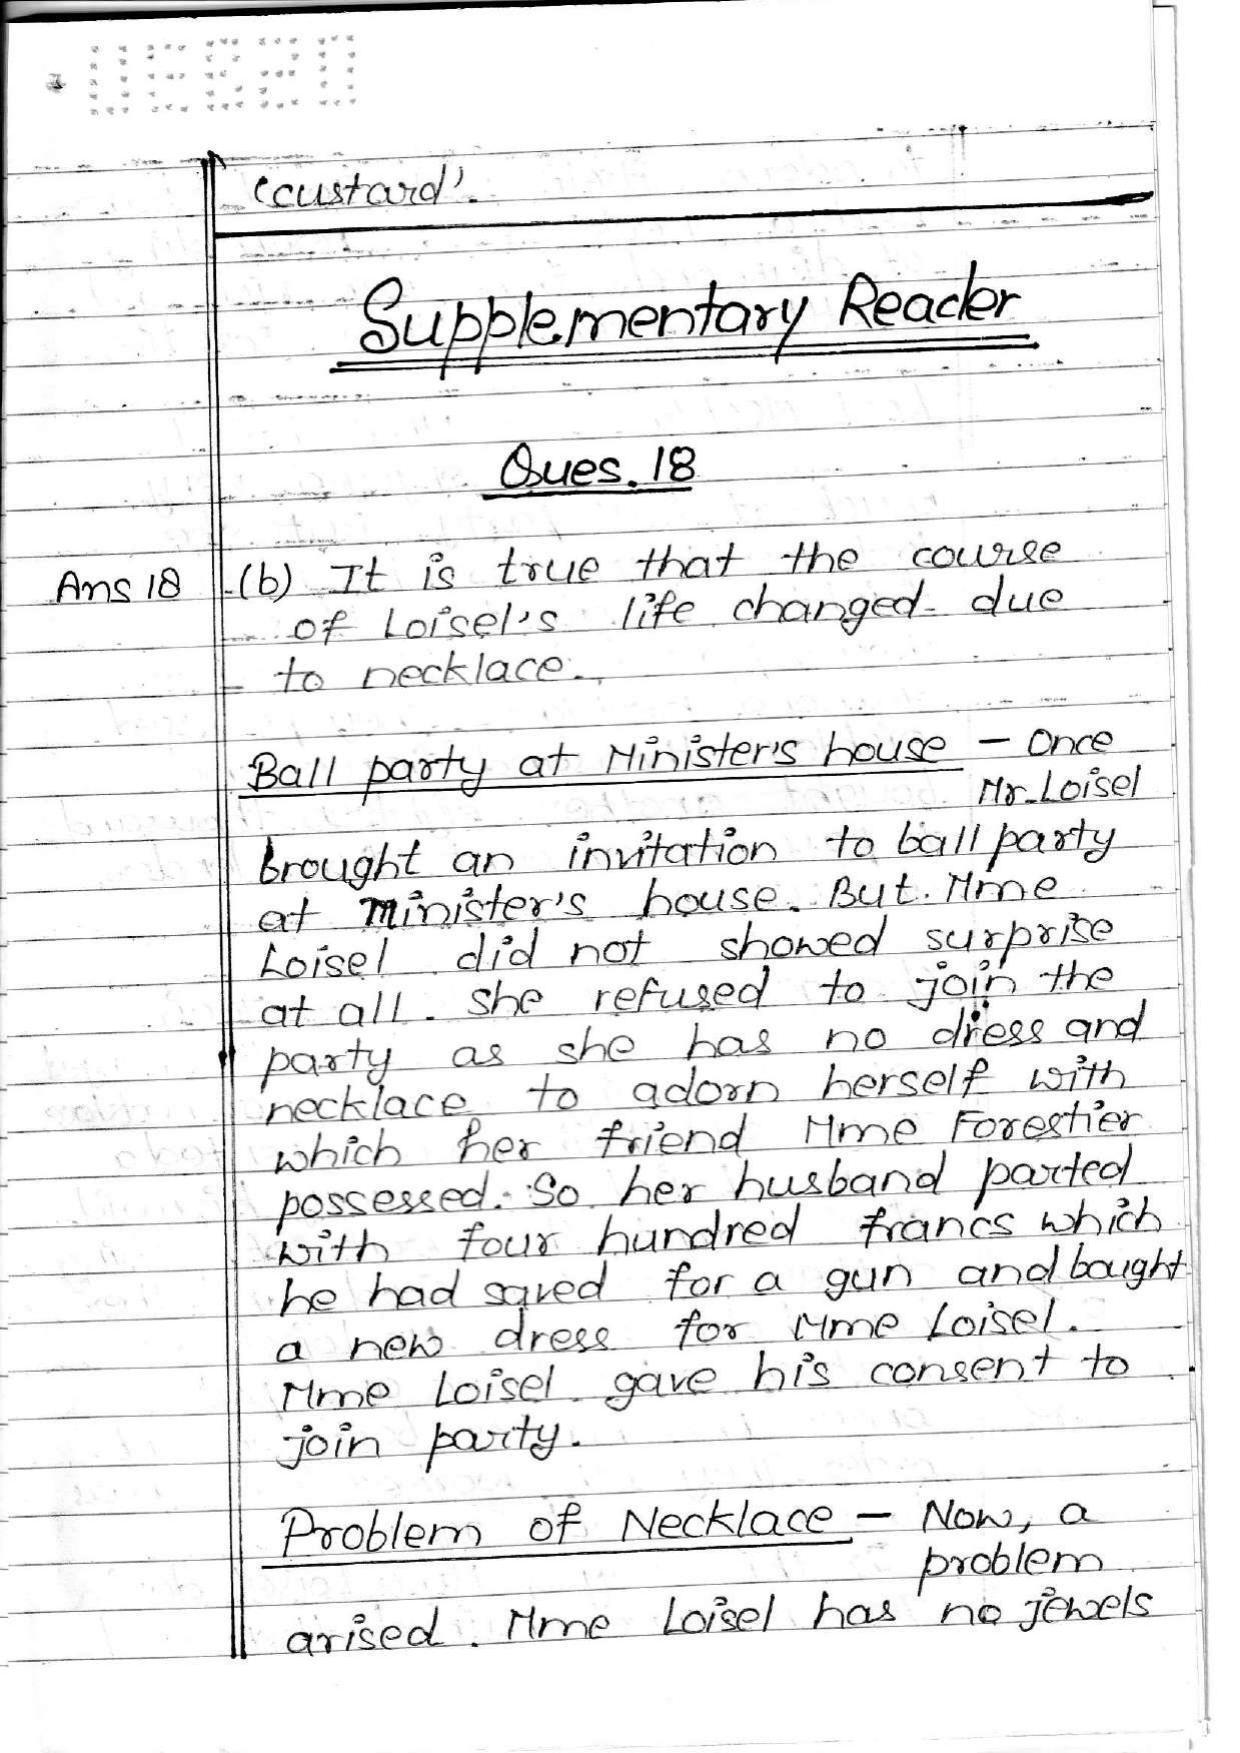 'custard'.
Supplementary Reader
Ques. 18
Ans 18 (b) It is true that the course
of Loisel's life changed due
to necklace.
Ball party at Minister's house - Once
Mr. Loisel
brought an invitation to ball party
at Minister's house. But Mme
Loisel did not showed surprise
at all. She refused to join the
party as she has no dress and
necklace to adorn herself with
which her friend Mme Forestier
possessed. So her husband parted
with four hundred francs which
he had saved for a gun and bought
a new dress for Mme Loisel.
Mme Loisel gave his consent to
join party.
Problem of Necklace - Now, a
problem
arised. Mme Loisel has no jewels